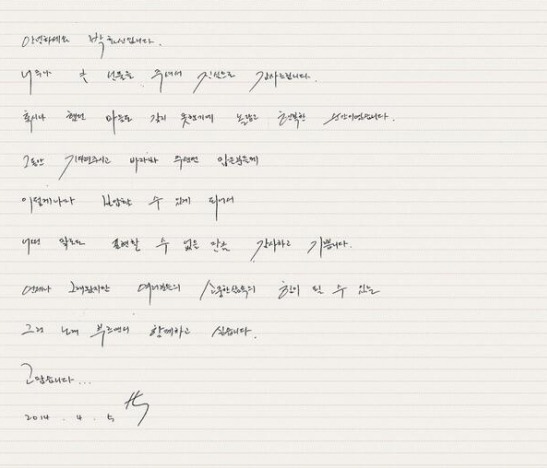 안녕하세요 박효신입니다.
너무나 큰 선물을 주셔서 진심으로 감사드립니다.
혹시나 했던 마음도 갖지 못했기에 놀랍고 행복한 순간이었습니다.
그동안 기다려주시고 바라봐 주셨던 많은분들께
이렇게나마 보답할 수 있게 되어서
어떤 말로도 표현할 수 없을 만큼 감사하고 기쁩니다.
언제나 그래왔지만 여러분들의 소중한 삶속의 힘이 될 수 있는
그런 노래 부르면서 함께하고 싶습니다.
고맙습니다...
2014 . 4 . 5